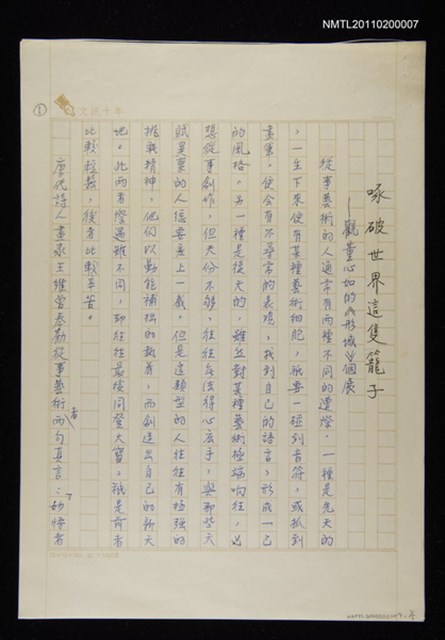 NMTL20110200007
啄破世界這隻籠子
——觀董心如的《形域》個展
從事藝術的人通常有兩種不同的遭際。一種是先天的
，一生下來便有某種藝術細胞，祇要一碰到音符，或抓到
畫筆，便會有不尋常的表現，找到自己的語言，形成一己
的風格。另一種是後天的，雖然對某種藝術極端嚮往，也
想從事創作，但天份不夠，往往無法得心應手，與那些天
賦異稟的人總要差上一截。但是這類型的人往往有極強的
挑戰精神，他們以勤能補拙的執着，而創造出自己的新天
地。此兩者際遇雖不同，卻往往最後同登大寶，祇是前者
比較輕鬆，後者比較辛苦。
唐代詩人畫家王維曾奉勸從事藝術者兩句真言：「妙悟者